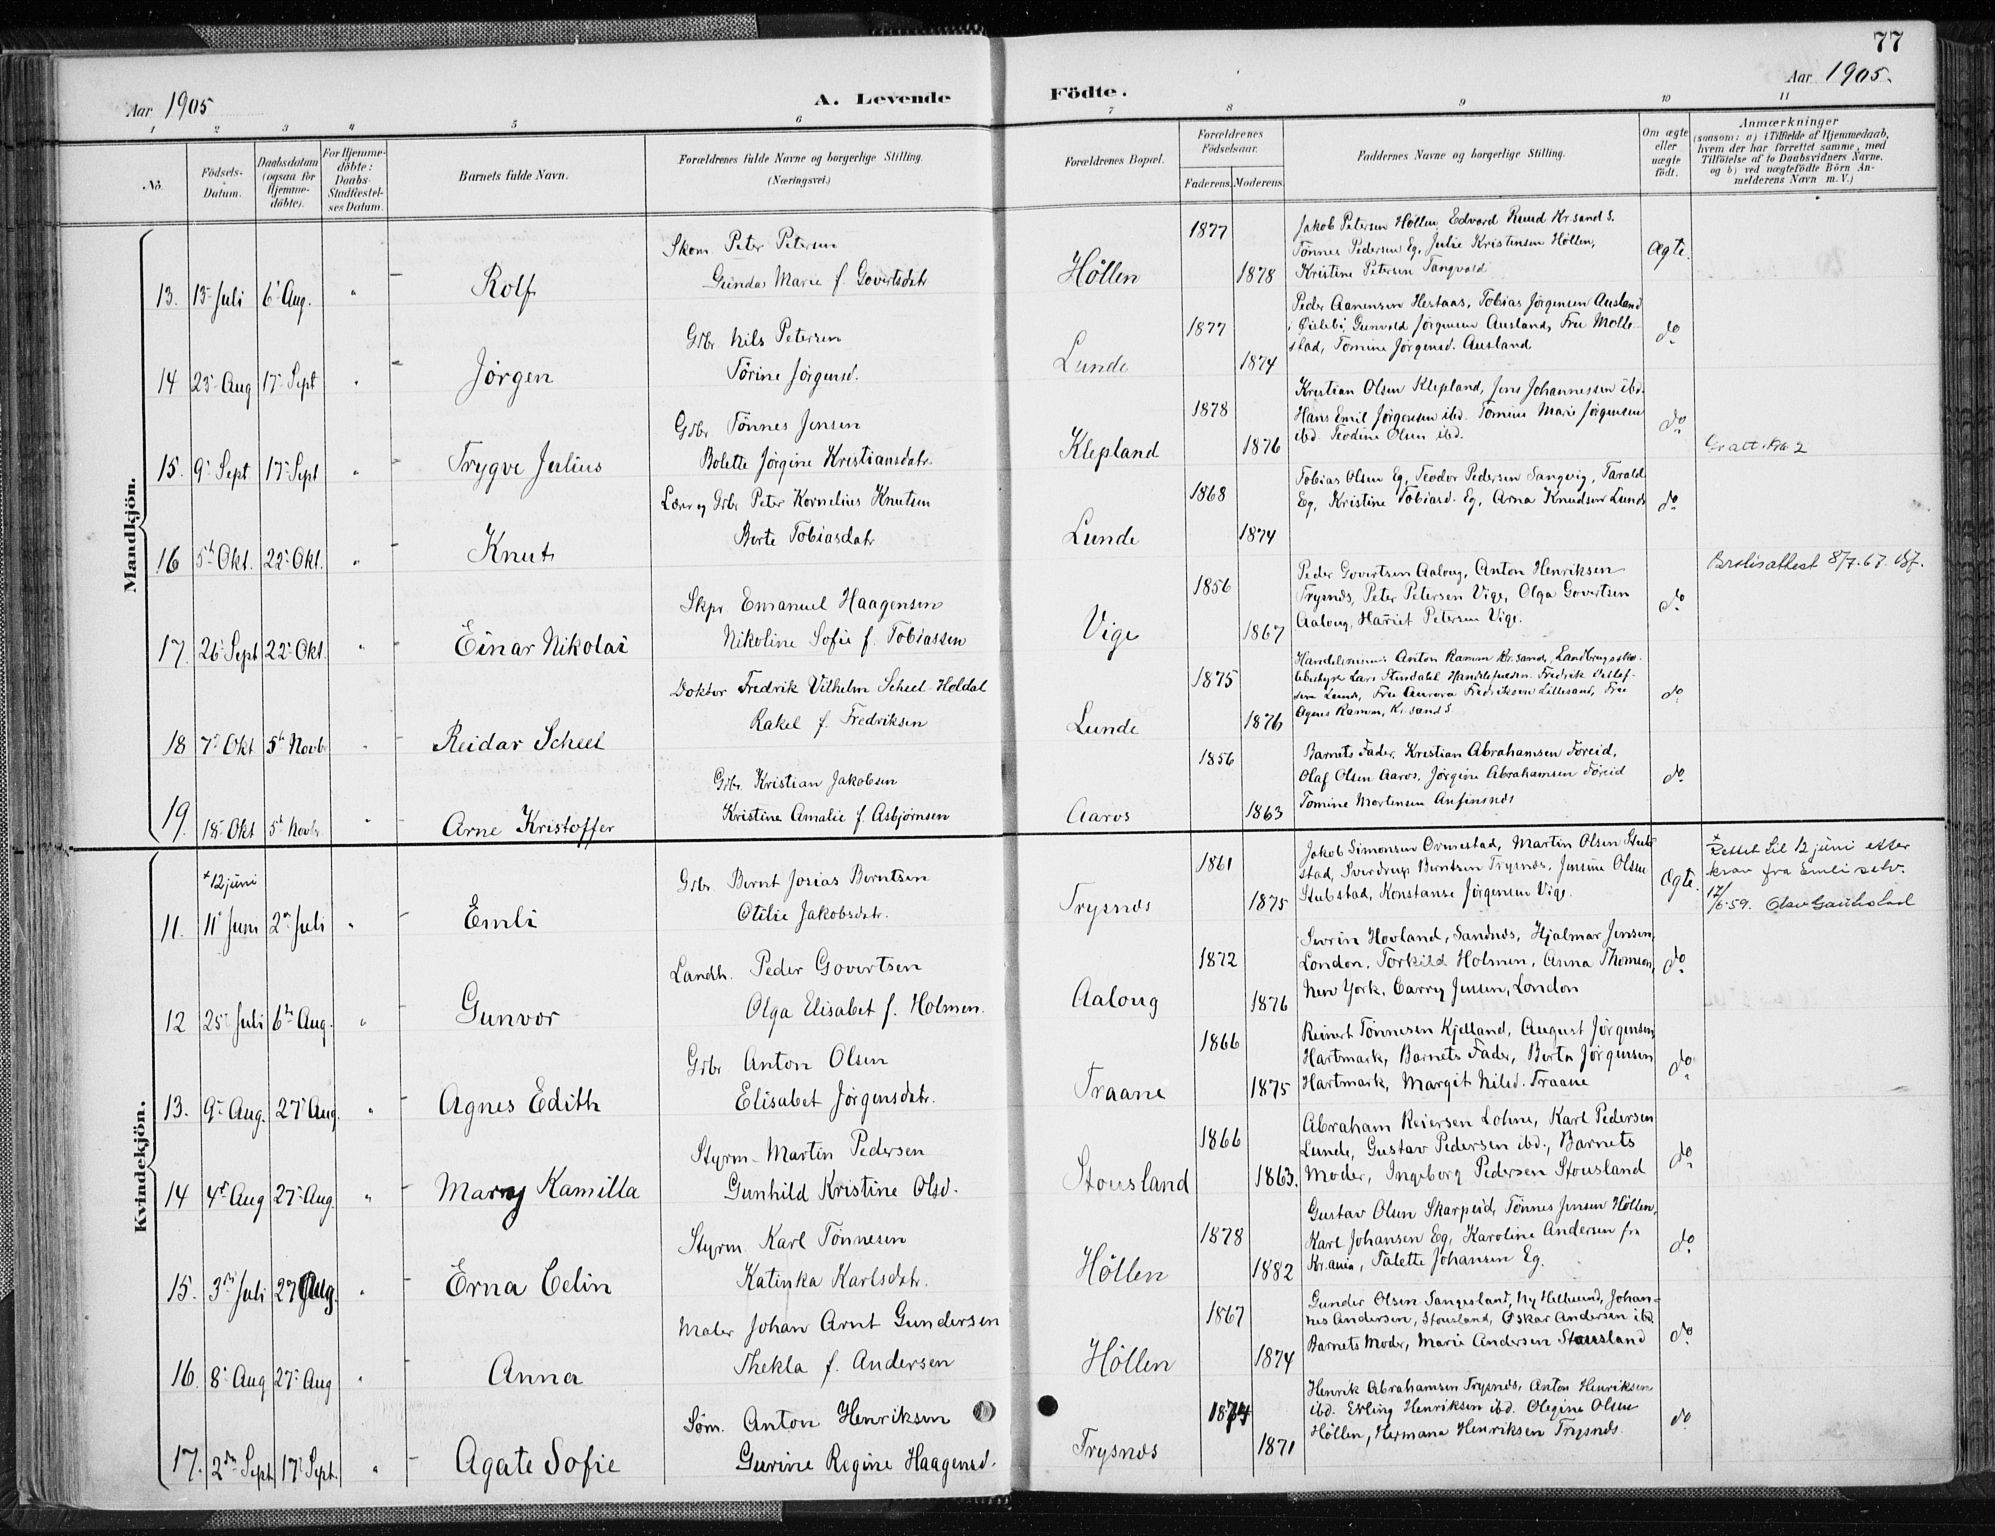 77
Aar 1905
A. Levende Födte.
Aar 1905.
1 2 3 4 5 6 7 8 9 10 11
No.
Födsels-Datum.
Daabsdatum (ogsaa for Hjemme-döbte).
For Hjemme-döbte: Daabs-Stadfæstel-ses Datum.
Barnets fulde Navn.
Forældrenes fulde Navne og borgerlige Stilling. (Næringsvei.)
Forældrenes Bopæl.
Forældrenes Födselsaar.
Faderens. Moderens.
Faddernes Navne og borgerlige Stilling.
Om ægte eller uægte födt.
Anmærkninger
(saasom: a) i Tilfælde af Hjemmedaab, hvem der har forrettet samme, med Tilföielse af to Daabsvidners Navne, og b) ved uægtefödte Börn An-melderens Navn m. V.)
Mandkjön.
Skom. Peter Petersen 1877 Jakob Petersen Høllen, Edvard Ruud Kr.sand S.
Tønnes Pedersen Eg, Julie Kristensen Høllen, Ægte.
13. 15 Juli 6 Aug. " Rolf Gunda Marie f. Govertsdatr Høllen 1878 Kristine Petersen Tangvald
Gbr Nils Petersen 1877 Peder Aanensen Hestaas, Tobias Jørgensen Ausland
i Øislebø, Gunvald Jørgensen Ausland, Fru Molle- do
14 23 Aug 17 Sept " Jørgen Tørine Jørgensd. Lunde 1874 stad, Tomine Jørgensd. Ausland
Gbr Tønnes Jensen 1878 Kristian Olsen Klepland, Jens Johannessen ibd.
Hans Emil Jørgensen ibd. Tomine Marie Jørgensen do
15. 9 Sept 17 Sept " Trygve Julius Bolette Jørgine Kristiansdatr. Klepland 1876 ibd. Teodine Olsen ibd.
Lærer og Gbr. Peter Kornelius Knutsen 1868 Tobias Olsen Eg, Teodor Pedersen Sangvig, Tarald
Eg, Kristine Tobiasd. Eg, Arna Knudsen Lunde do
16 5t Okt. 22 Okt. " Knut Berte Tobiasdatr Lunde 1874
Skpr. Emanuel Haagensen 1856 Peder Govertsen Aalong, Anton Henriksen
Trysnes, Peter Petersen Vige, Olga Govertsen do
17. 26 Sept 22 Okt. " Einar Nikolai Nikoline Sofie f. Tobiassen Vige 1867 Aalong, Hariet Petersen Vige.
Doktor Fredrik Vilhelm Scheel-Holdal 1875 Anton Ramm Kr.sand,
Lunde, Fru Aurora Fredriksen Lillesand, Fru do
18 7 Okt 5t Novbr " Reidar Scheel Rakel f. Fredriksen Lunde 1876 Agnes Ramm, Kr.sand S.
Gbr. Kristian Jakobsen 1856 Barnets Fader, Kristian Abrahamsen Føreid,
Olaf Olsen Aaros, Jørgine Abrahamsen Føreid do
19. 18 Okt 5t Novbr " Arne Kristoffer Kristine Amalie f. Asbjørnsen Aaros 1863 Tomine Mortensen Anfinsnes
Kvindekjön.
x 12 juni Gbr. Bernt Josias Berntsen 1861 Jakob Simonsen Ormestad, Martin Olsen Stub-
stad, Sverdrup Berntsen Trysnes, Jensine Olsen Ægte.
11. 11 Juni 2n Juli " Emli Otilie Jakobsdatr. Trysnes 1875 Stubstad, Konstanse Jørgensen Vige.
x Rettet til 12 juni etter krav fra Emli selv. 17/6.59.
Landh. Peder Govertsen 1872 Severin Hovland, Sandnes, Hjalmar Jensen,
London, Torkild Holmen, Anna Thomson, do
12 25 Juli 6te Aug. " Gunvor Olga Elisabet f. Holmen. Aalong 1876 New York, Carry Jensen, London
Gbr Anton Olsen 1866 Reinert Tønnesen Kjelland, August Jørgensen
Hartmark, Barnets Fader, Berta Jørgensen do
13. 9 Aug. 27 Aug. " Agnes Edith Elisabet Jørgensdatr. Traane 1875 Hartmark, Margit Nilsd. Traane
Styrm. Martin Pedersen 1866 Abraham Reiersen Lohne, Karl Pedersen
Lunde, Gustav Pedersen ibd., Barnets do
14 4d Aug 27 Aug. " Mary Kamilla Gunhild Kristine Olsd. Stousland 1863. Moder, Ingeborg Pedersen Stousland
Styrm. Karl Tønnesen 1878 Gustav Olsen Skarpeid, Tønnes Jensen Høllen,
Karl Johansen Eg, Karoline Andersen fra do
15. 3die Juli 27 Aug. " Erna Celin Katinka Karlsdatr. Høllen 1882 Kr.ania, Talette Johansen Eg.
Maler Johan Arnt Gundersen 1867 Gunder Olsen Sangesland, Ny Hellesund, Johan-
nes Andersen, Stousland, Oskar Andersen ibd. do
16. 8 Aug 27 Aug " Anna Thekla f. Andersen Høllen 1874 Barnets Moder, Marie Andersen Stousland
Søm. Anton Henriksen 1874 Henrik Abrahamsen Trysnes, Anton Henriksen
ibd. Erling Henriksen ibd. Olegine Olsen do
17. 2den Sept 17 Sept. " Agate Sofie Gurine Regine Haagensd. Trysnes 1871 Høllen, Hermana Henriksen Trysnes.